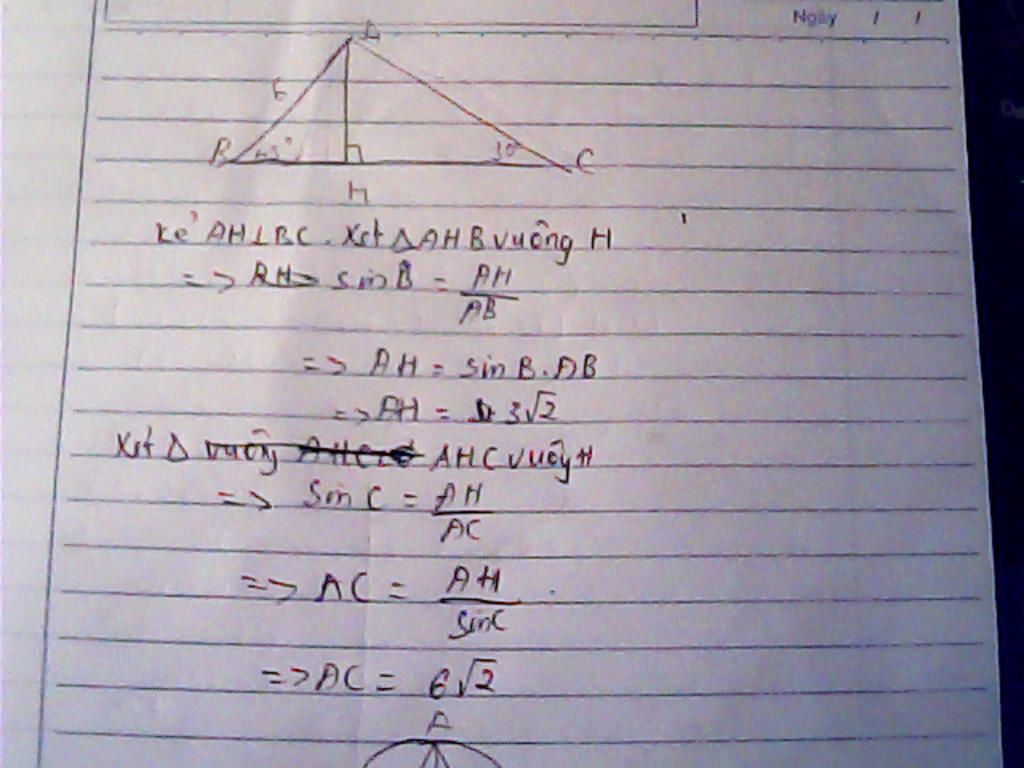 Ngày / /
A
6
B 45° 30° C
H
kẻ AH⊥BC. Xét ΔAHB vuông H
=> sin B = AH/AB
=> AH = sin B. AB
=> AH = 3√2
Xét Δ AHC vuông H
=> Sin C = AH/AC
=> AC = AH/sin C
=> AC = 6√2
A